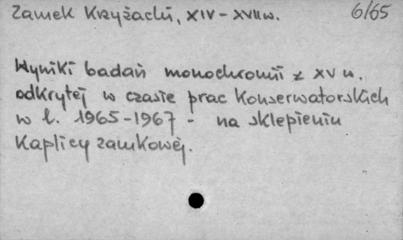 Zamek Krzyżacki, XIV-XVII w. 6/65
Wyniki badań monochromii z XV w.
odkrytej w czasie prac konserwatorskich
w l. 1965-1967 - na sklepieniu
Kaplicy zamkowej.